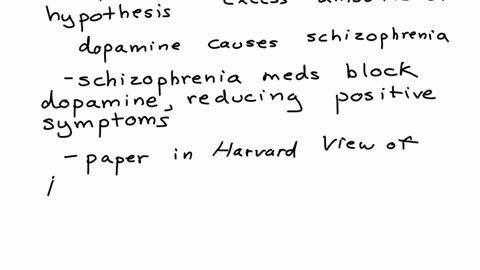 hypothesis
dopamine causes schizophrenia
- schizophrenia meds block
dopamine, reducing positive
symptoms
- paper in Harvard View of